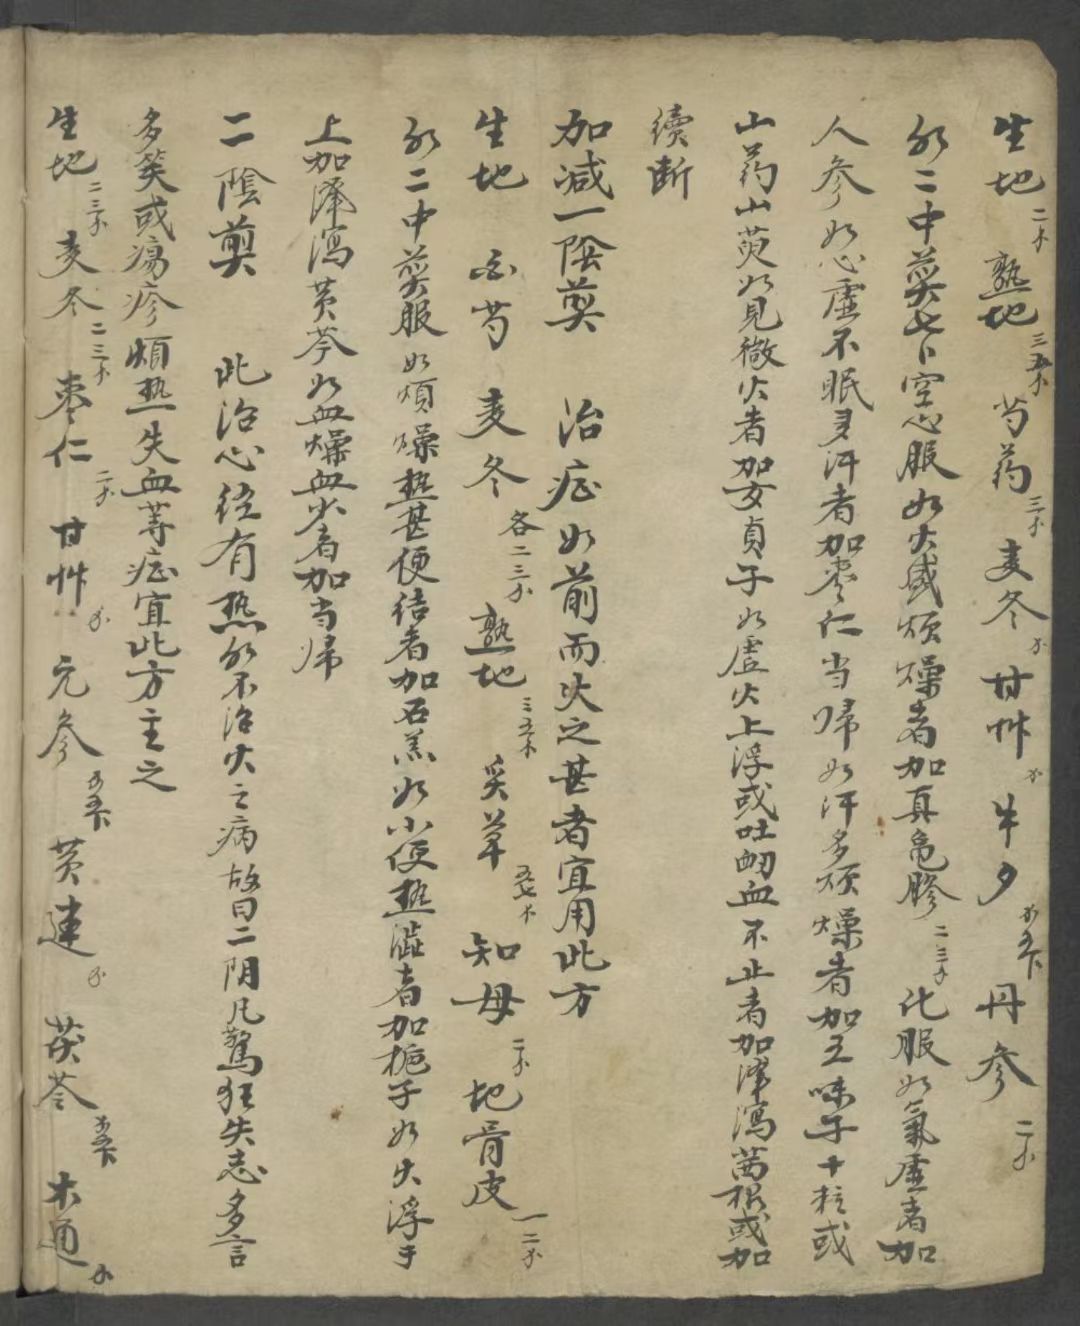 生地二不 熟地三五不 芍药三不 麦冬不 甘艸不 牛夕 丹参二不
水二中煎七卜空心服如火盛烦燥者加真龟膠二三不化服如氣虚者加
人参如心虚不眠多汗者加枣仁当归如汗多烦燥者加五味子十粒或
山药山萸如見微火者加女貞子如虚火上浮或吐衂血不止者加泽瀉茜根或加
續断
加减一陰煎 治症如前而火之甚者宜用此方
生地 白芍 麦冬各二三不 熟地三五不 炙草五七不 知母二不 地骨皮一二不
水二中煎服如煩燥热甚便结者加石羔如小便热澁者加栀子如火浮于
上加泽瀉黄芩如血燥血少者加当归
二陰煎 此治心经有热水不治火之病故曰二阴凡驚狂失志多言
多笑或瘍疹煩热失血等症宜此方主之
生地二三不 麦冬二三不 枣仁二不 甘艸不 元参 黄連不 茯苓 木通不